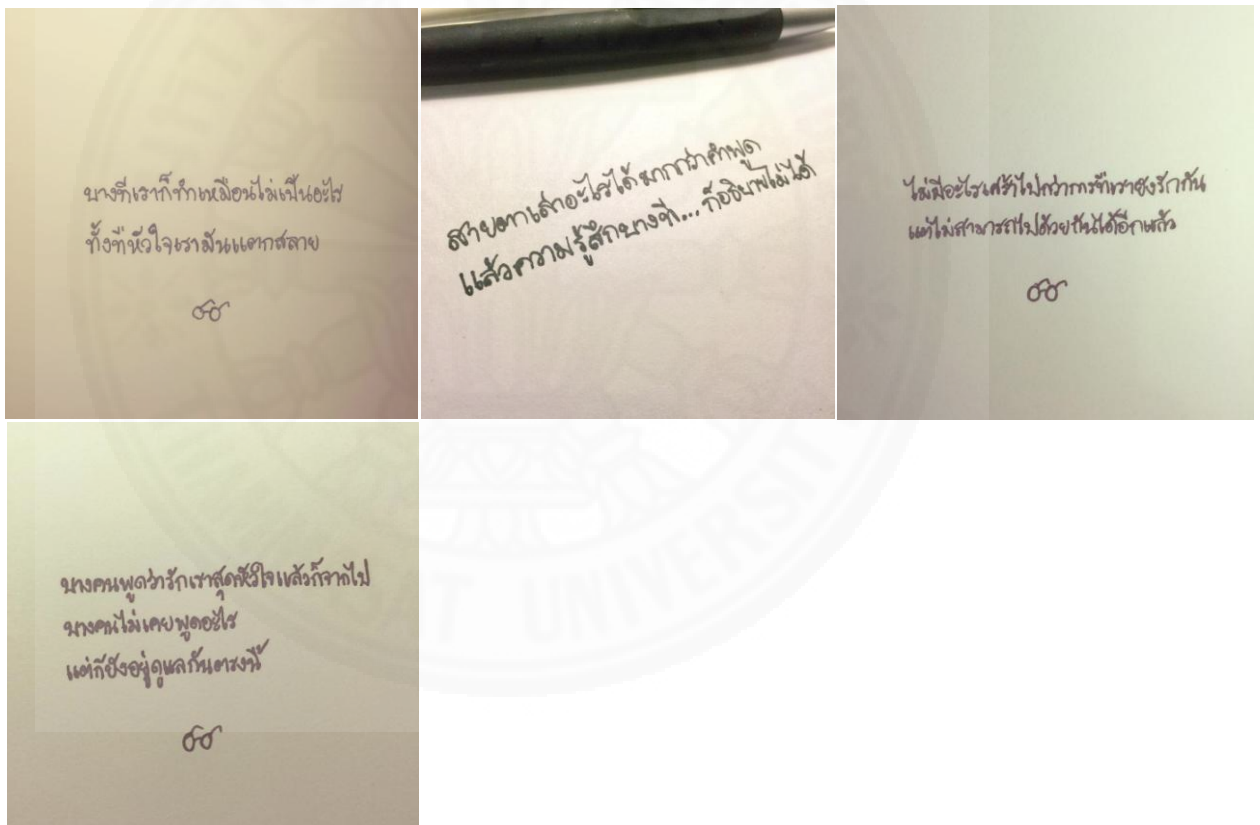 บางทีเราก็ทำเหมือนไม่เป็นอะไร
ทั้งที่หัวใจเรามันแตกสลาย
สายตาเล่าอะไรได้มากกว่าคำพูด
แล้วความรู้สึกบางที...ก็อธิบายไม่ได้
ไม่มีอะไรเศร้าไปกว่าการที่เรายังรักกัน
แต่ไม่สามารถไปด้วยกันได้อีกแล้ว
บางคนพูดว่ารักเราสุดหัวใจแล้วก็จากไป
บางคนไม่เคยพูดอะไร
แต่ก็ยังอยู่ดูแลกันตรงนี้
UNIVERSIT